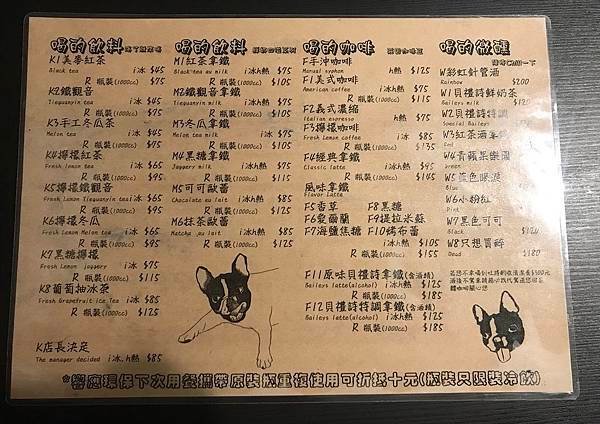 喝的飲料
K1美麥紅茶
Black tea i冰 $45
R 瓶裝(1000cc) $75
K2鐵觀音
Tieguanyin tea i冰 $45
R 瓶裝(1000cc) $75
K3手工冬瓜茶
Melon tea i冰 $45
R 瓶裝(1000cc) $75
K4檸檬紅茶
Fresh lemon tea i冰 $65
R 瓶裝(1000cc) $95
K5檸檬鐵觀音
Fresh Lemon Tieguanyin tea i冰 $65
R 瓶裝(1000cc) $95
K6檸檬冬瓜
Fresh Lemon Melon tea i冰 $65
R 瓶裝(1000cc) $95
K7黑糖檸檬
Fresh Lemon jaggery i冰 $75
R 瓶裝(1000cc) $115
K8葡萄柚冰茶
Fresh Grapefruit ice Tea i冰 $85
R 瓶裝(1000cc) $125
K店長決定
The manager decided i冰.h熱 $85
喝的飲料
M1紅茶拿鐵
Black tea au milk i冰h熱 $75
R 瓶裝(1000cc) $105
M2鐵觀音拿鐵
Tieguanyin milk i冰h熱 $75
R 瓶裝(1000cc) $105
M3冬瓜拿鐵
Melon tea milk i冰 $75
R 瓶裝(1000cc) $105
M4黑糖拿鐵
Jaggery milk i冰h熱 $75
R 瓶裝(1000cc) $115
M5可可歐蕾
Chocolate au lait i冰h熱 $85
R 瓶裝(1000cc) $125
M6抹茶歐蕾
Matcha au lait i冰h熱 $85
R 瓶裝(1000cc) $125
喝的咖啡
F手沖咖啡
Manual syphon h熱 $125
F1美式咖啡
American coffee i冰h熱 $75
R 瓶裝(1000cc) $115
F2義式濃縮
Italian espresso h熱 $75
F3檸檬咖啡
Fresh Lemon coffee i冰 $85
R 瓶裝(1000cc) $135
F4經典拿鐵
Classic latte i冰h熱 $95
R 瓶裝(1000cc) $145
風味拿鐵
Flavor Latte
F5香草 F8黑糖
F6愛爾蘭 F9提拉米蘇
F7海鹽焦糖 F10烤布蕾
i冰h熱 $105
R 瓶裝(1000cc) $155
F11原味貝禮詩拿鐵(含酒精)
Baileys latte(alcohol) i冰h熱 $125
R 瓶裝(1000cc) $185
F12貝禮詩特調拿鐵(含酒精)
Baileys latte(alcohol) i冰h熱 $125
R 瓶裝(1000cc) $185
喝的微醺
W彩虹針管酒
Rainbow $200
W1貝禮詩鮮奶茶
Baileys milk $120
W2貝禮詩特調
Special Baileys
W3紅茶酒
Red
W4青蘋果樂園
Green
W5藍色
Blue
W6小粉紅
Pink
W7黑色可可
Black $120
W8只想買醉
Dead $180
☆響應環保下次用餐攜帶原裝瓶重複使用可折抵十元(瓶裝只限裝冷飲)